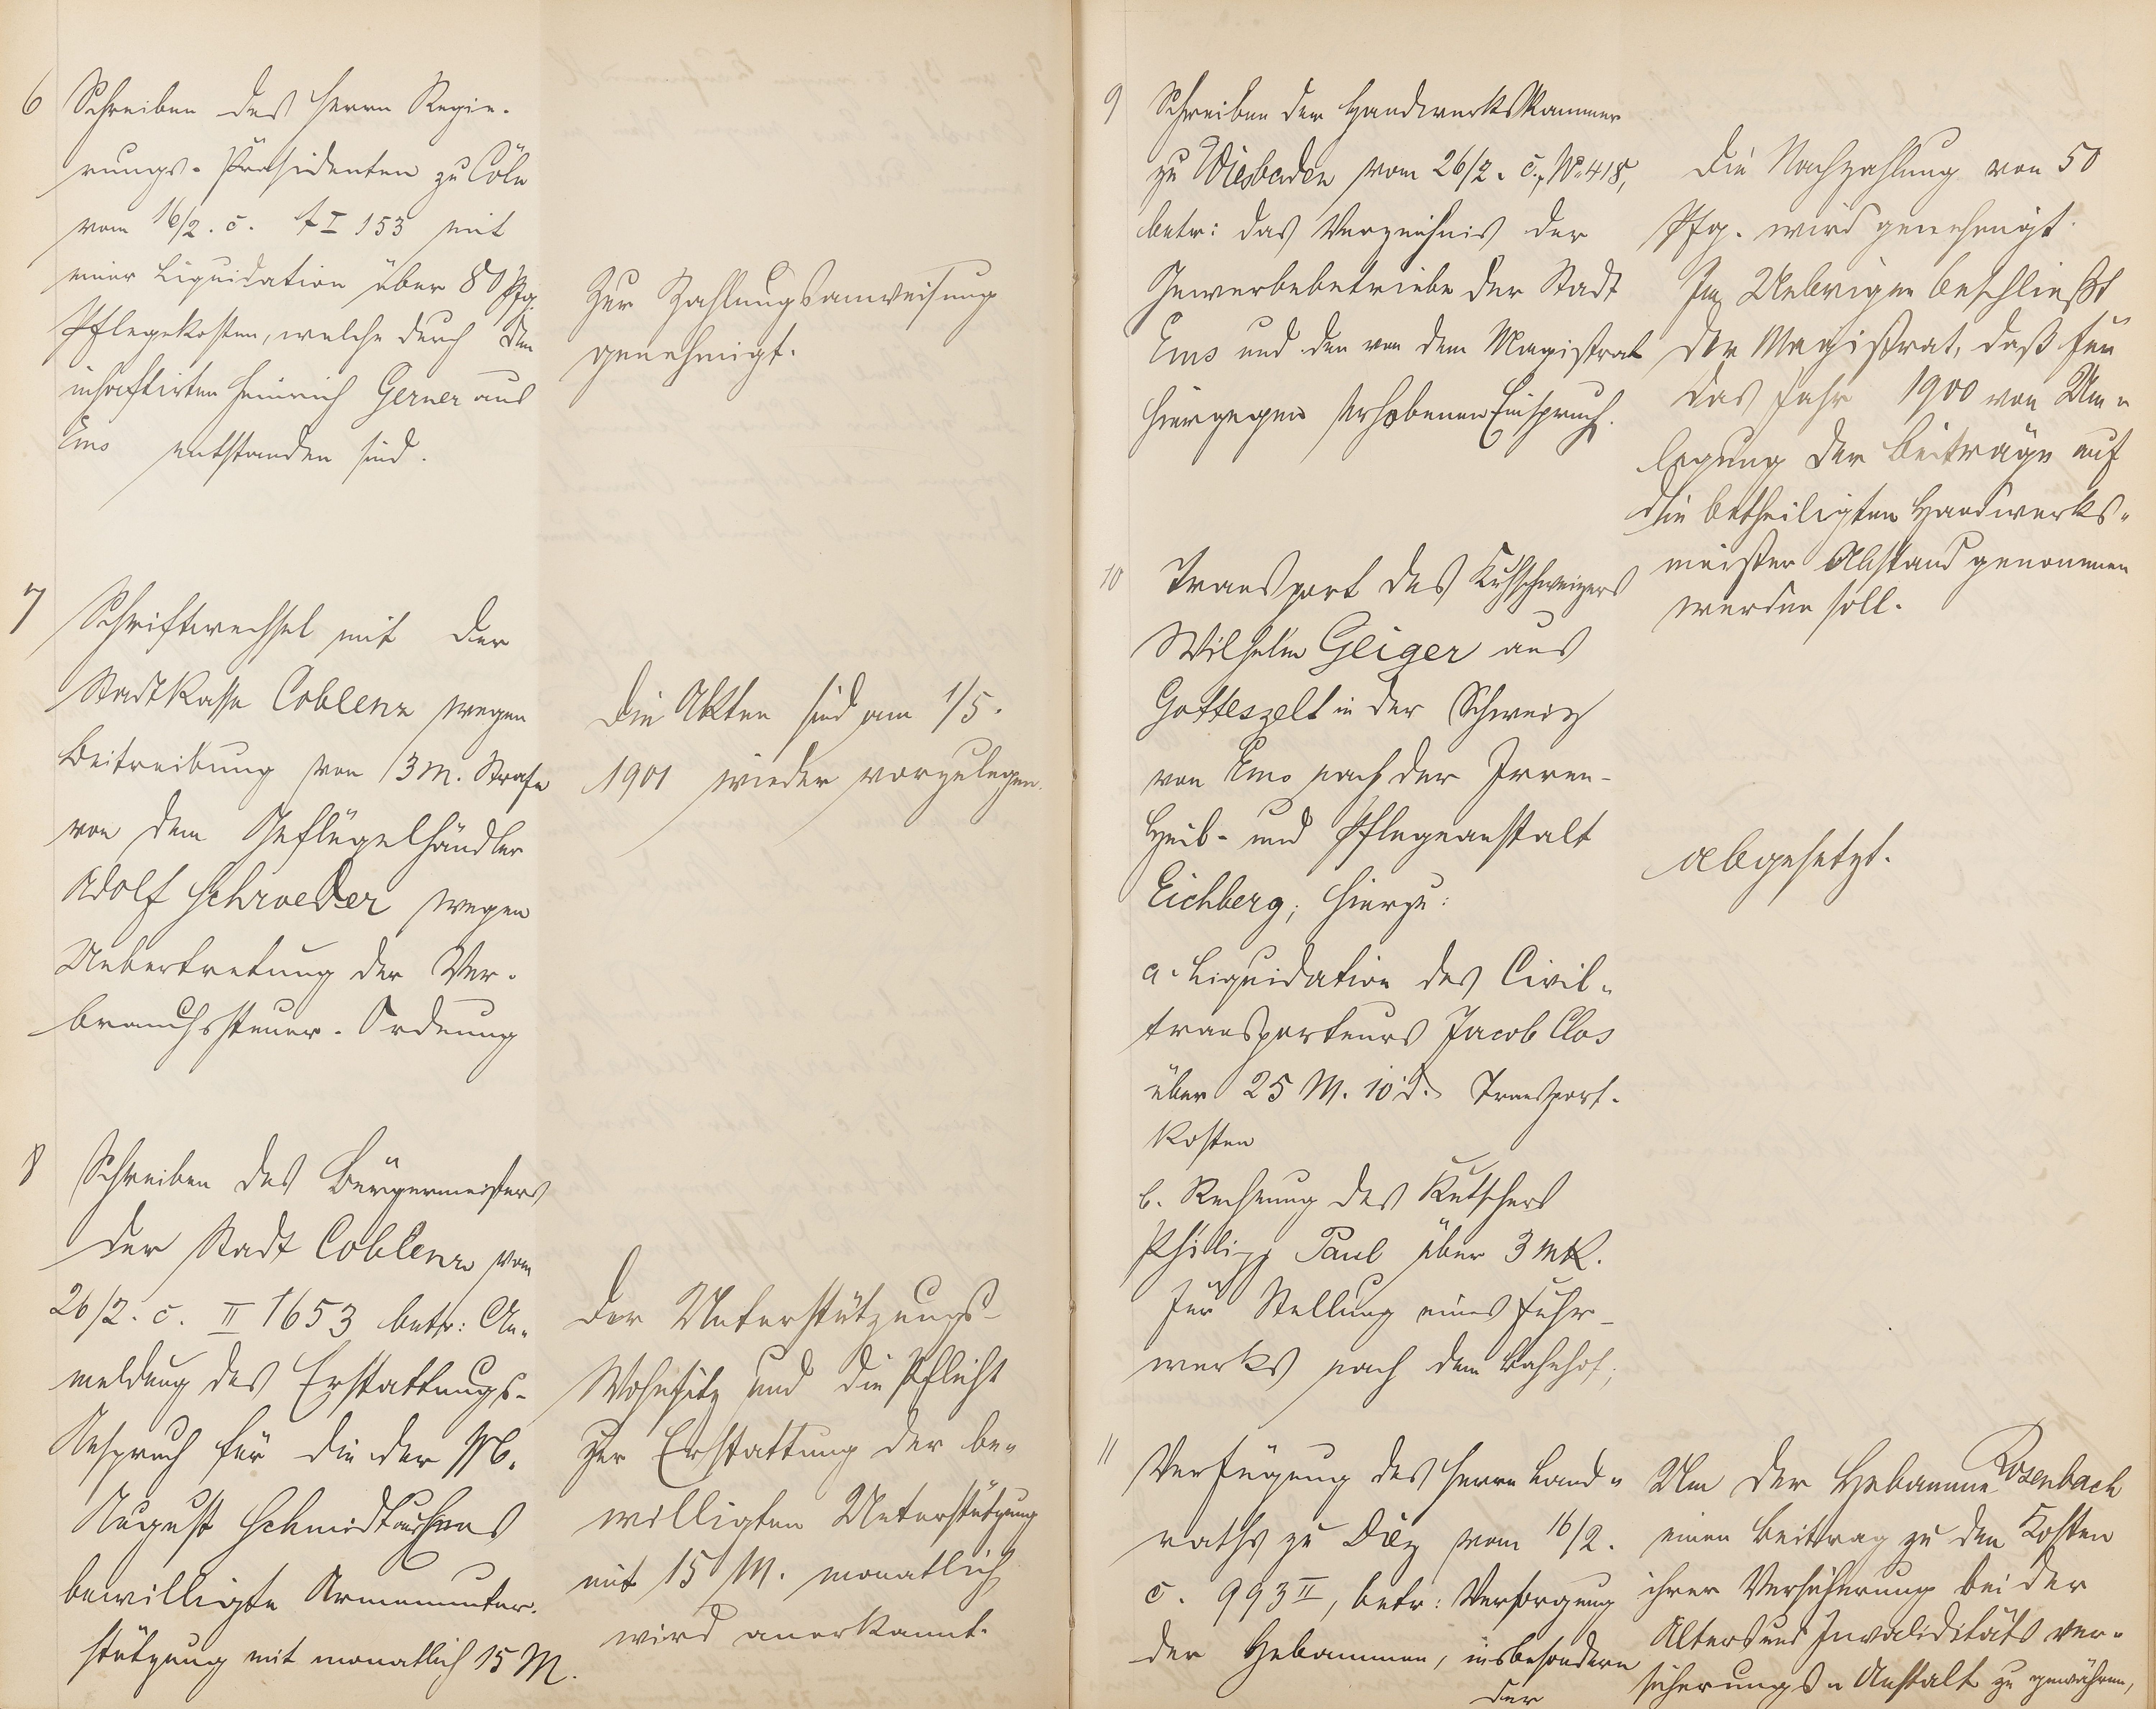 6 Schreiben des Herrn Regie-
rungs-Präsidenten zu Cöln
vom 16/2. c. A I 153 mit
einer Liquidation über 80 Pfg.
Pflegekosten, welche durch den
inhaftirten Heinrich Gerner aus
Ems entstanden sind.
Zur Zahlungsanweisung
genehmigt.
7 Schriftwechsel mit der
Stadtkasse Coblenz wegen
Beitreibung von 3 M. Strafe
von dem Geflügelhändler
Adolf Schroeder wegen
Uebertretung der Ver-
brauchssteuer-Ordnung
Die Akten sind am 1/5.
1901 wieder vorzulegen.
8 Schreiben des Bürgermeisters
der Stadt Coblenz vom
26/2. c. II 1653 betr: An-
meldung des Erstattungs-
Anspruch für die der
August Schmidt
bewilligte Armenunter-
stützung mit monatlich 15 M.
Der Unterstützungs-
Wohnsitz und die Pflicht
zur Erstattung der be-
willigten Unterstützung
mit 15 M. monatlich
wird anerkannt.
9 Schreiben der Handwerkskammer
zu Wiesbaden vom 26/2. c., No 418,
betr: das Verzeichnis der
Gewerbebetriebe der Stadt
Ems und den von dem Magistrat
hiergegen erhobenen Einspruch.
Die Nachzahlung von 50
Pfg. wird genehmigt.
Im Uebrigen beschließt
der Magistrat, daß für
das Jahr 1900 von Um-
legung der Beiträge auf
die betheiligten Handwerks-
meister Abstand genommen
werden soll.
10 Transport des Kuhschweizers
Wilhelm Geiger aus
Gotteszelt in der Schweiz
von Ems nach der Irren-
Heil- und Pflegeanstalt
Eichberg; hierzu:
a. Liquidation des Civil-
transporteurs Jacob Clos
über 25 M. 10 d. Transport-
kosten
b. Rechnung des Kutschers
Philipp Paul über 3 Mk.
für Stellung eines Fuhr-
werks nach dem Bahnhof;
abgesetzt.
11 Verfügung des Herrn Land-
raths zu Diez vom 16/2.
c. 993 II, betr: Versorgung
der Hebammen, insbesondere
der
Um der Hebamme Rosenbach
einen Beittrag zu den Kosten
ihrer Versicherung bei der
Alters und Invaliditäts ver-
sicherungs-Anstalt zu gewähren,